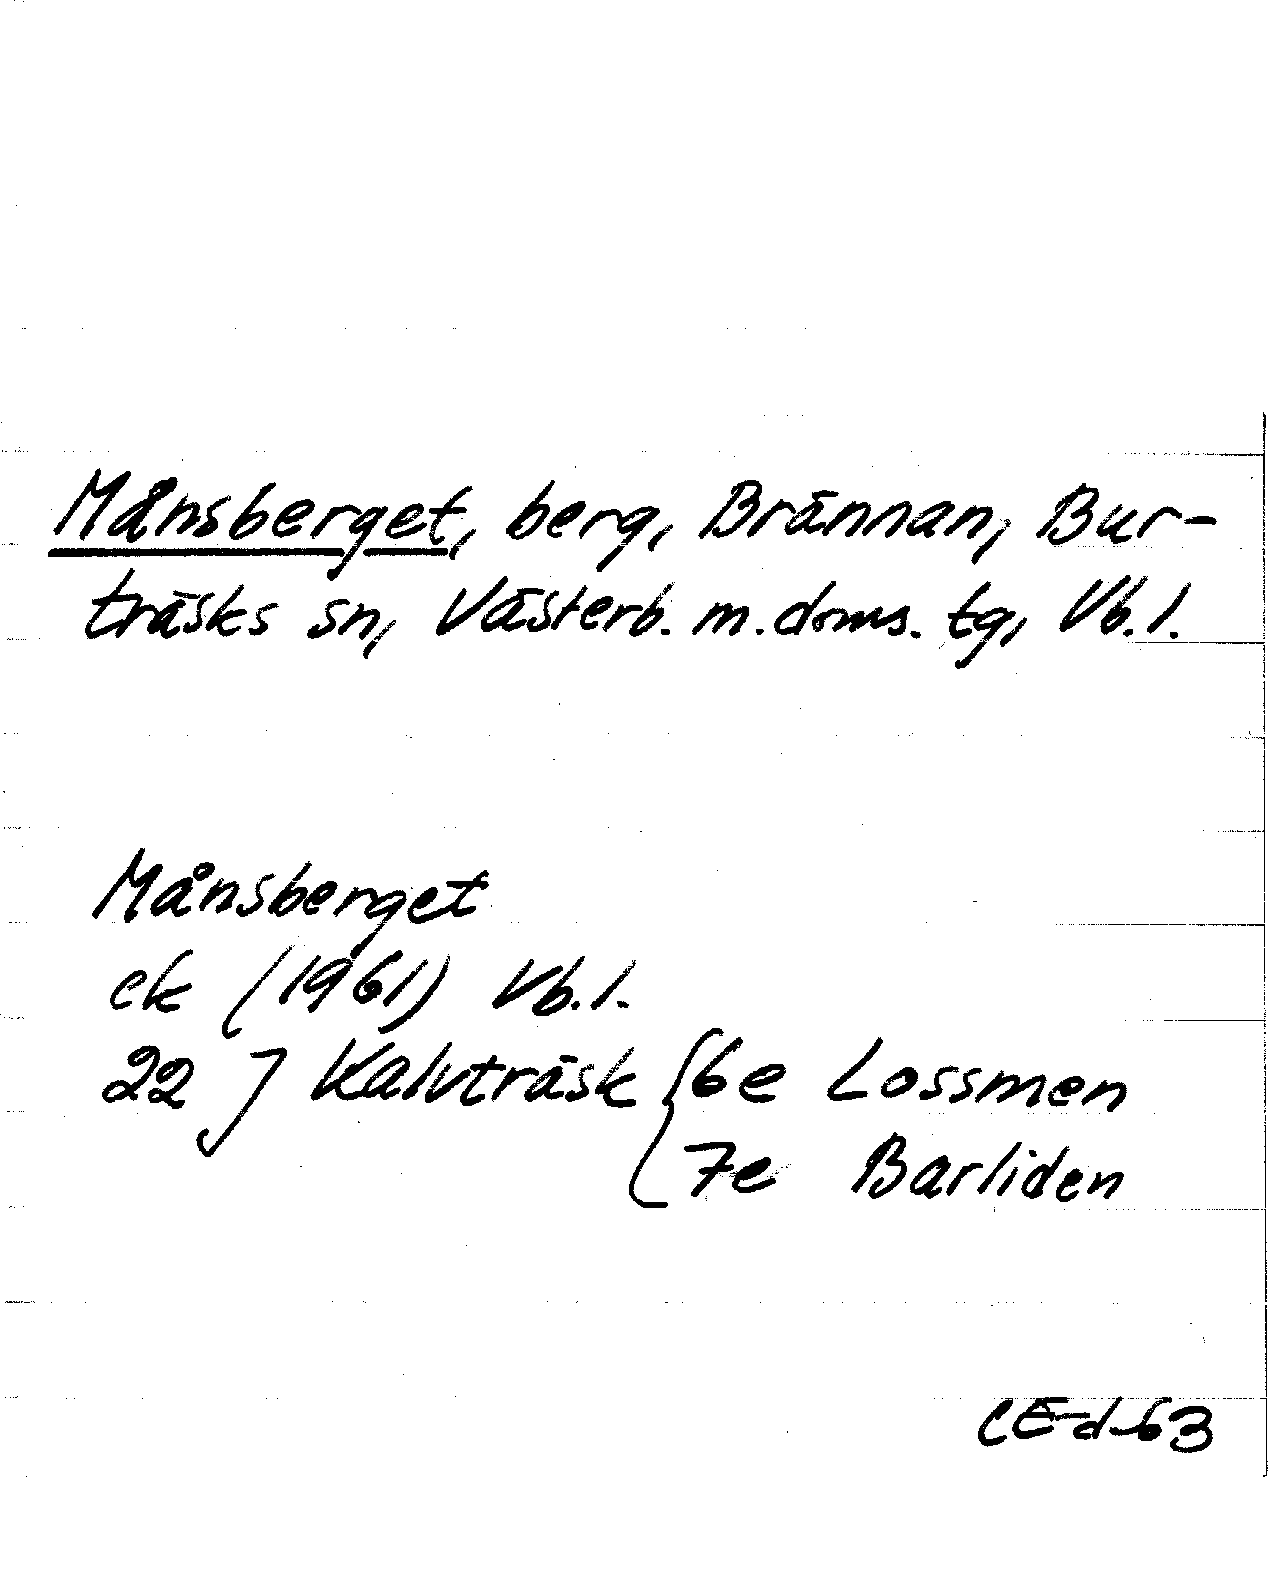 Månsberget, berg, Brännan, Bur-
träsks sn, Västerb. m. doms. tg, Vb. l.
Månsberget
ek (1961) Vb. l.
22 J Kalvträsk { 6e Lossmen
7e Barliden
CE-d-63